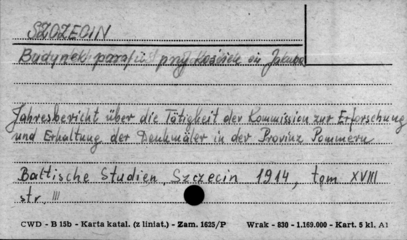 SZCZECIN
Budynek parafii przy kościele św. Jakuba
Jahresbericht über die Tätigkeit der Kommission zur Erforschung
und Erhaltung der Denkmäler in der Provinz Pommern
Baltische Studien, Szczecin 1914, tom XVIII
str. III
CWD - B 15b - Karta katal. (z liniat.) - Zam. 1625/P Wrak - 830 - 1.169.000 - Kart. 5 kl. A1